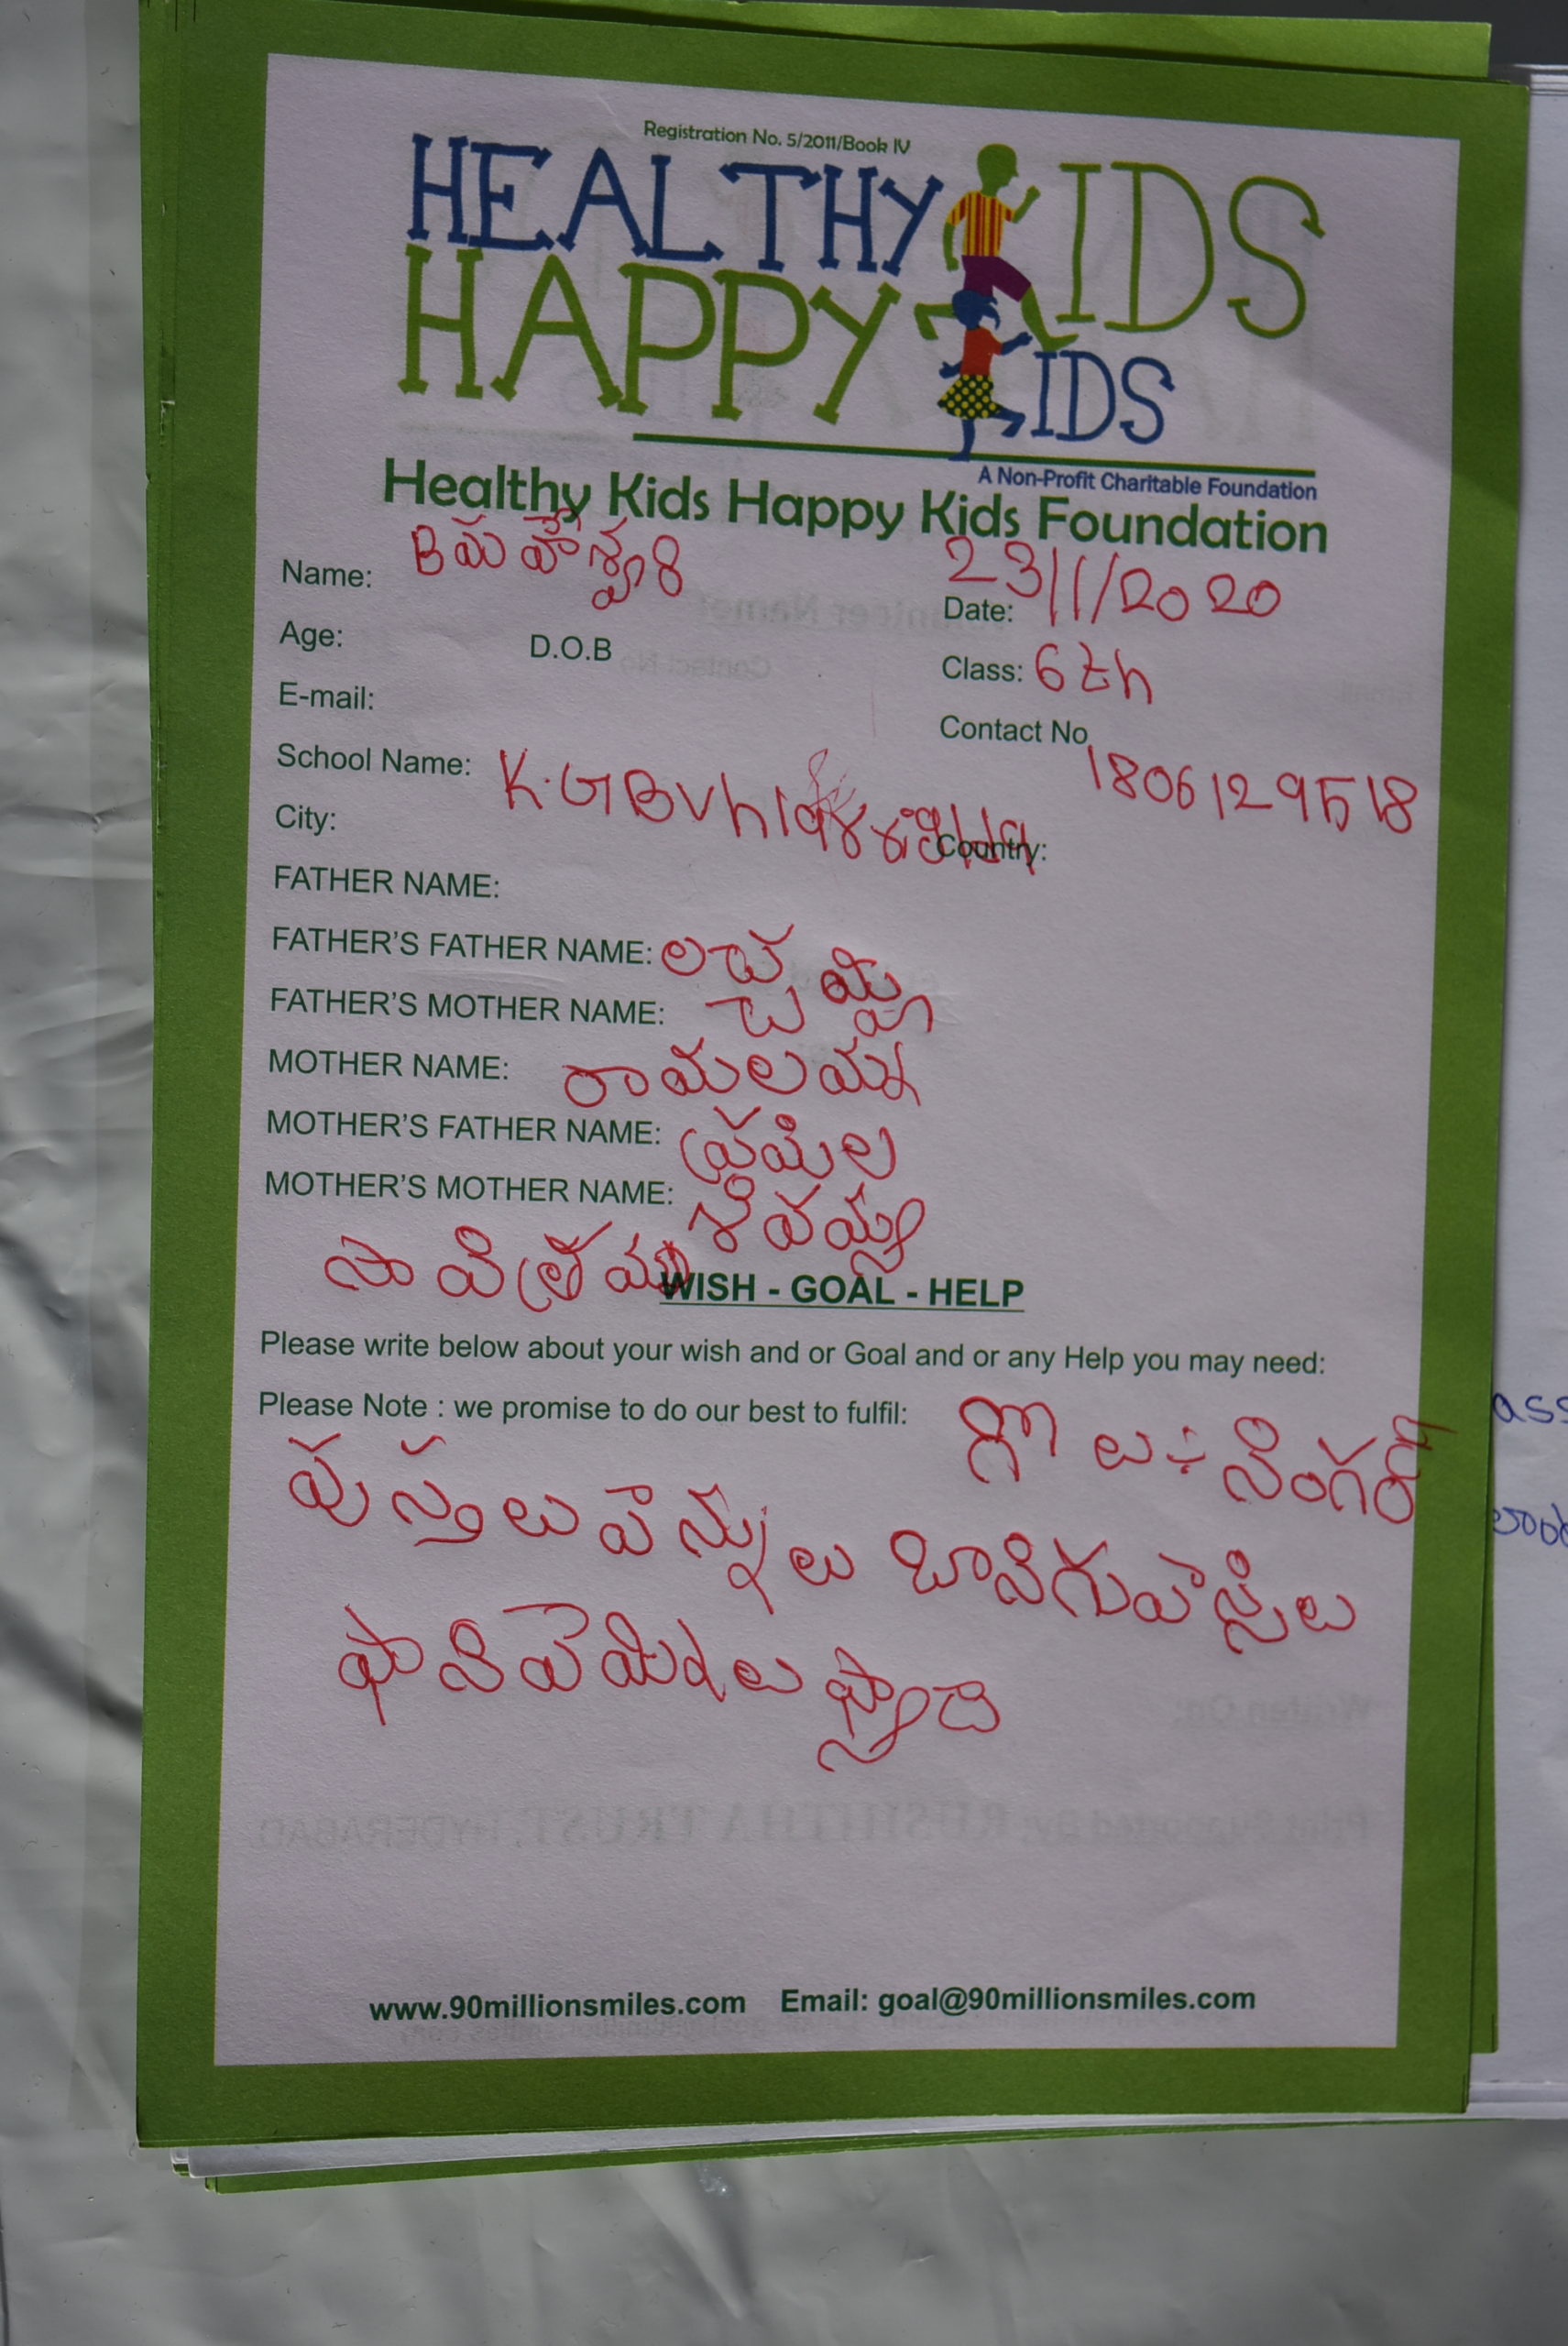 Registration No. 5/2011/Book IV
HEALTHY KIDS
HAPPY KIDS
A Non-Profit Charitable Foundation
Healthy Kids Happy Kids Foundation
Name: B మహేశ్వరి
Date: 23/1/2020
Age: D.O.B
Class: 6th
E-mail:
Contact No 1806129518
School Name: K.GBV
City:
Country:
FATHER NAME:
FATHER'S FATHER NAME:
FATHER'S MOTHER NAME:
MOTHER NAME: రామలమ్మ
MOTHER'S FATHER NAME: ప్రమిల
MOTHER'S MOTHER NAME: శివమ్మ
సావిత్రమ్మ
WISH - GOAL - HELP
Please write below about your wish and or Goal and or any Help you may need:
Please Note : we promise to do our best to fulfil: సింగర్
పుస్తలు పెన్నులు
www.90millionsmiles.com Email: goal@90millionsmiles.com